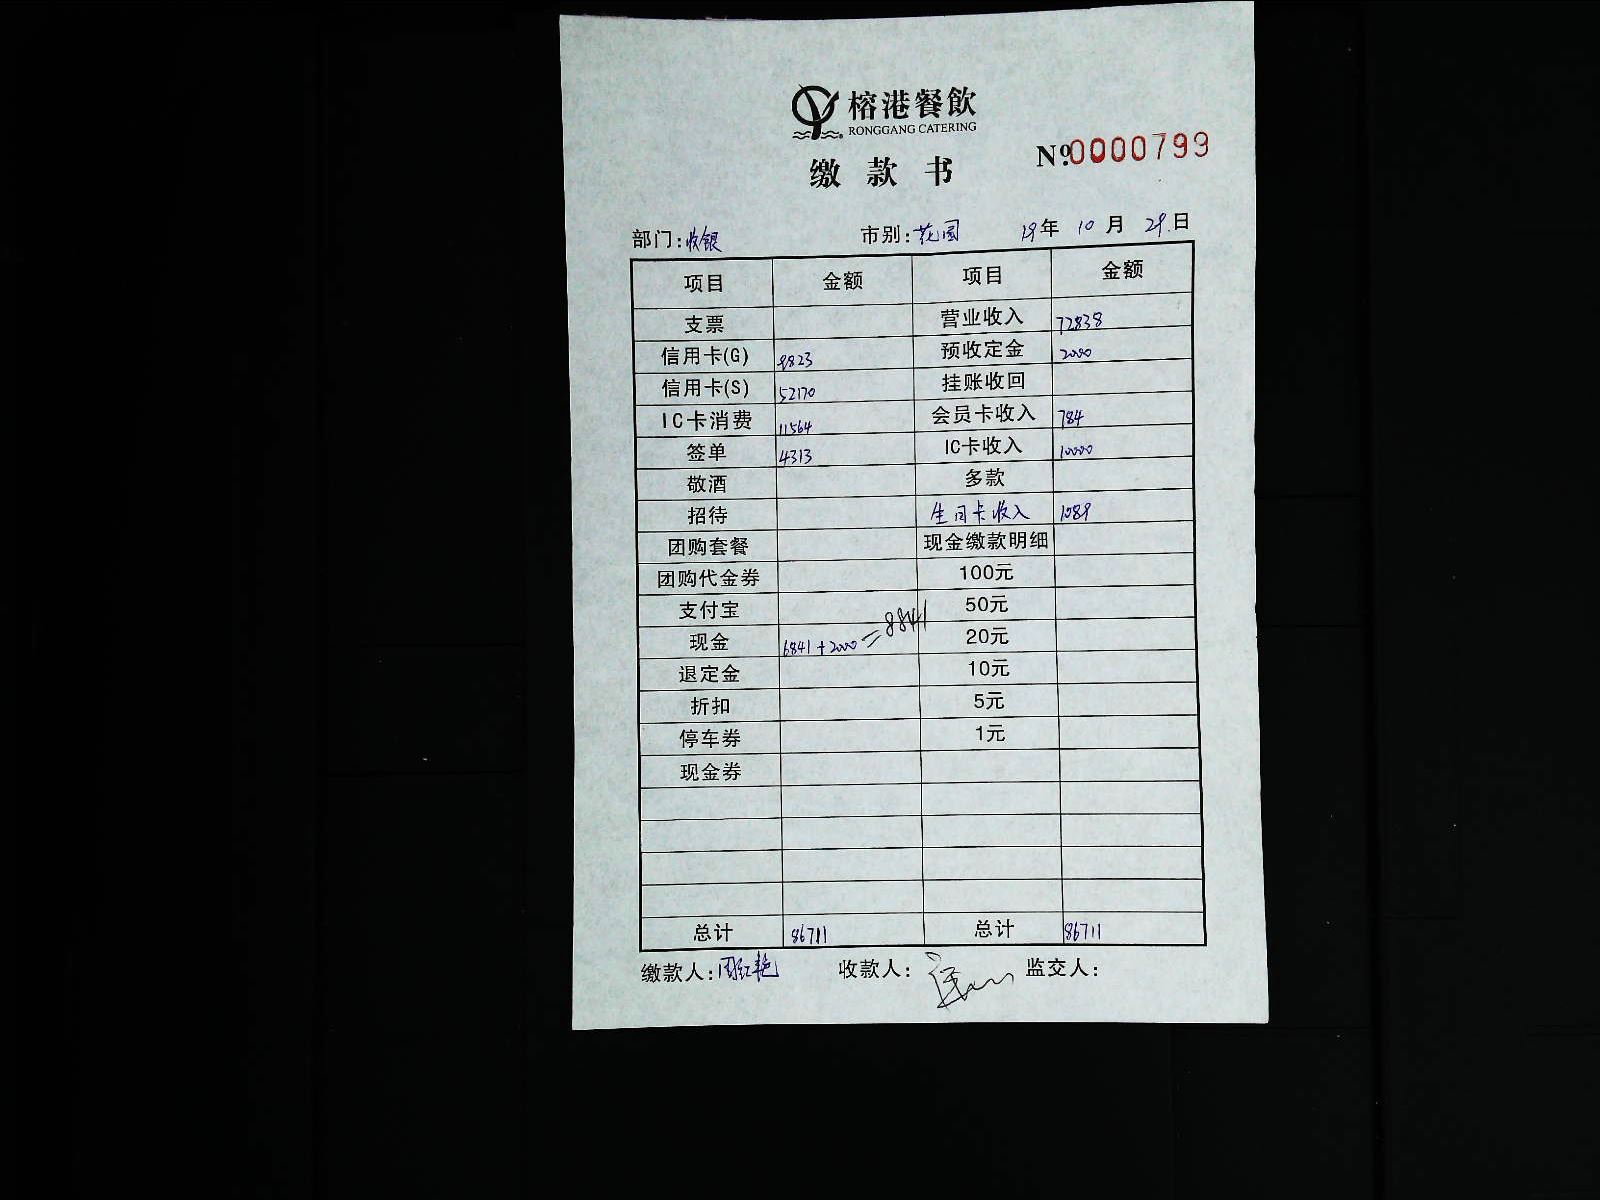 榕港餐飲
RONGGANG CATERING
缴款书
Nº.0000799
部门:收银 市别:花园 19年 10月 29日
项目 金额 项目 金额
支票 营业收入 72838
信用卡(G) 9823 预收定金 2000
信用卡(S) 52170 挂账收回
IC卡消费 11564 会员卡收入 784
签单 4313 IC卡收入 10000
敬酒 多款
招待 生日卡收入 1089
团购套餐 现金缴款明细
团购代金券 100元
支付宝 50元
现金 6841+2000=8841 20元
退定金 10元
折扣 5元
停车券 1元
现金券
总计 86711 总计 86711
缴款人:周红艳 收款人: 监交人: